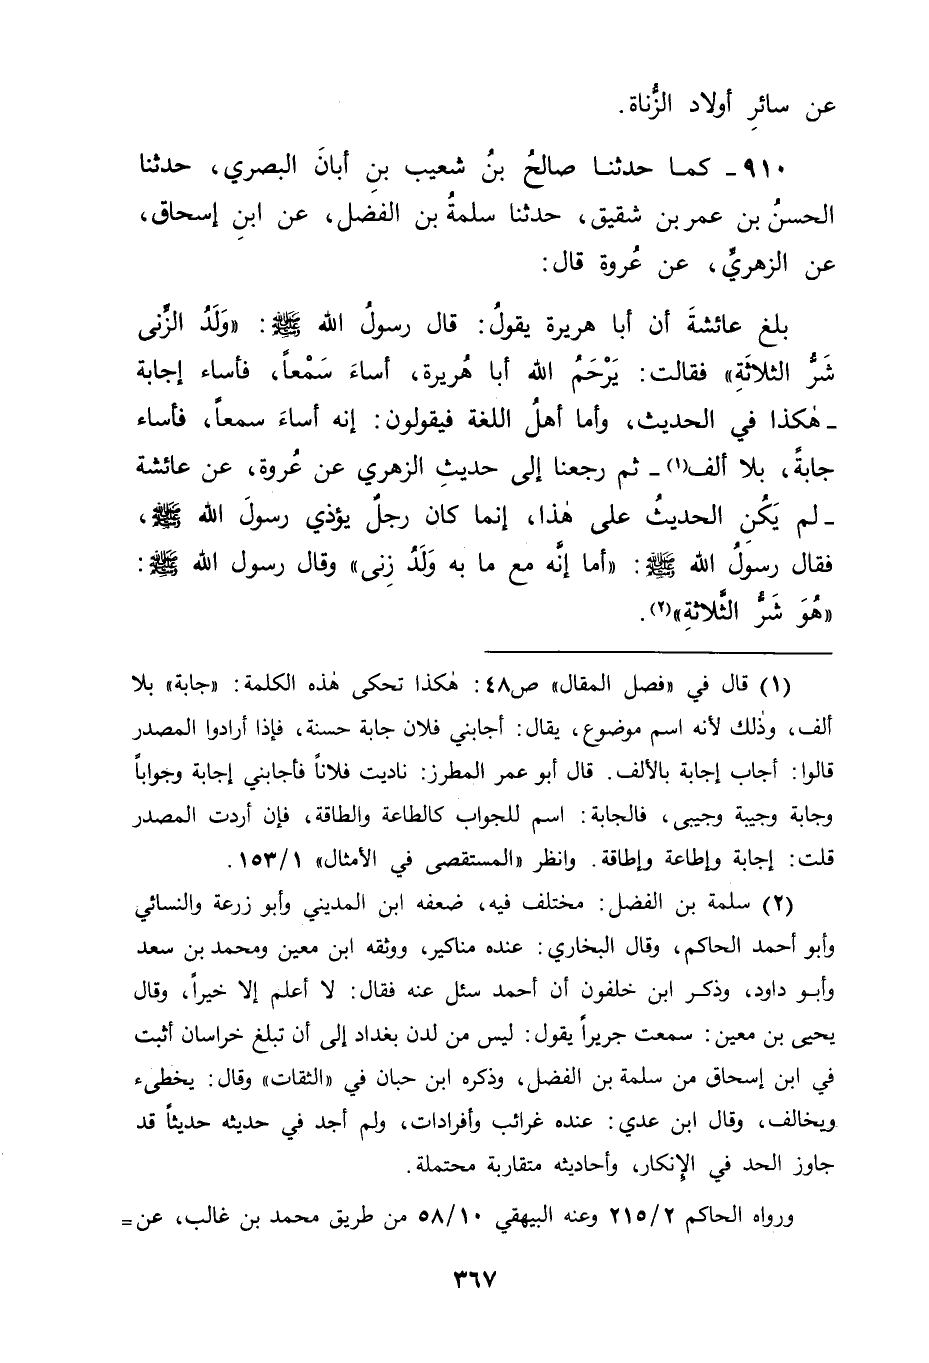 عن سائرِ أولاد الزُّناة.
٩١٠ـ كما حدثنا صالحُ بنُ شعيب بنِ أبانَ البصري، حدثنا
الحسنُ بن عمر بن شقيق، حدثنا سلمةُ بن الفضل، عن ابنِ إسحاق،
عن الزهريِّ، عن عُروة قال:
بلغ عائشةَ أن أبا هريرة يقولُ: قال رسولُ الله ﷺ: «وَلَدُ الزِّنى
شَرُّ الثلاثَةِ» فقالت: يَرْحَمُ الله أبا هُريرة، أساءَ سَمْعاً، فأساء إجابة
ـ هٰكذا في الحديث، وأما أهلُ اللغة فيقولون: إنه أساءَ سمعاً، فأساء
جابةً، بلا ألف(١) ـ ثم رجعنا إلى حديثِ الزهري عن عُروة، عن عائشة
ـ لم يَكُنِ الحديثُ على هٰذا، إنما كان رجلٌ يؤذي رسولَ الله ﷺ،
فقال رسولُ الله ﷺ: «أما إنَّه مع ما به وَلَدُ زِنى» وقال رسول الله ﷺ:
«هُوَ شَرُّ الثَّلاثةِ»(٢).
(١) قال في «فصل المقال» ص٤٨: هٰكذا تحكى هٰذه الكلمة: «جابة» بلا
ألف، وذٰلك لأنه اسم موضوع، يقال: أجابني فلان جابة حسنة، فإذا أرادوا المصدر
قالوا: أجاب إجابة بالألف. قال أبو عمر المطرز: ناديت فلاناً فأجابني إجابة وجواباً
وجابة وجيبة وجيبى، فالجابة: اسم للجواب كالطاعة والطاقة، فإن أردت المصدر
قلت: إجابة وإطاعة وإطاقة. وانظر «المستقصى في الأمثال» ١٥٣/١.
(٢) سلمة بن الفضل: مختلف فيه، ضعفه ابن المديني وأبو زرعة والنسائي
وأبو أحمد الحاكم، وقال البخاري: عنده مناكير، ووثقه ابن معين ومحمد بن سعد
وأبو داود، وذكر ابن خلفون أن أحمد سئل عنه فقال: لا أعلم إلا خيراً، وقال
يحيى بن معين: سمعت جريراً يقول: ليس من لدن بغداد إلى أن تبلغ خراسان أثبت
في ابن إسحاق من سلمة بن الفضل، وذكره ابن حبان في «الثقات» وقال: يخطىء
ويخالف، وقال ابن عدي: عنده غرائب وأفرادات، ولم أجد في حديثه حديثاً قد
جاوز الحد في الإنكار، وأحاديثه متقاربة محتملة.
ورواه الحاكم ٢١٥/٢ وعنه البيهقي ٥٨/١٠ من طريق محمد بن غالب، عن=
٣٦٧